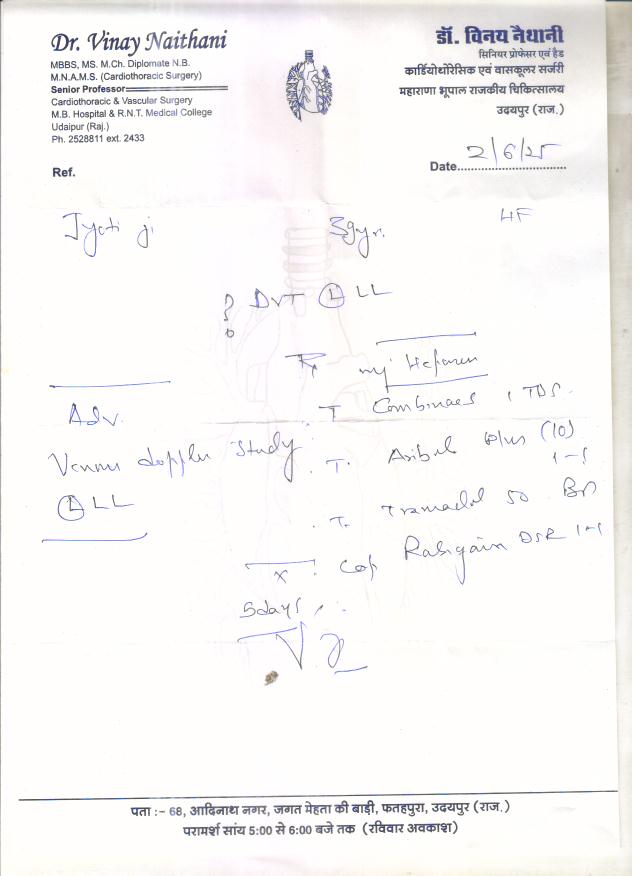 Dr. Vinay Naithani
MBBS, MS. M.Ch. Diplomate N.B.
M.N.A.M.S. (Cardiothoracic Surgery)
Senior Professor
Cardiothoracic & Vascular Surgery
M.B. Hospital & R.N.T. Medical College
Udaipur (Raj.)
Ph. 2528811 ext. 2433
डॉ. विनय नैथानी
सिनियर प्रोफेसर एवं हैड
कार्डियोथोरेसिक एवं वासकूलर सर्जरी
महाराणा भूपाल राजकीय चिकित्सालय
उदयपुर (राज.)
Ref.
Date 2/6/25
Jyoti ji 39yr.
? DVT (L) LL
Rx inj Heparen
Adv.
T Combinaes 1 TDS.
Venous doppler Study
(L) LL
T. plus (10) 1-1
T. Tramadol 50 BD
Cap Rabigain DSR 1-1
x 5days
पता :- 68, आदिनाथ नगर, जगत मेहता की बाड़ी, फतहपुरा, उदयपुर (राज.)
परामर्श सांय 5:00 से 6:00 बजे तक (रविवार अवकाश)